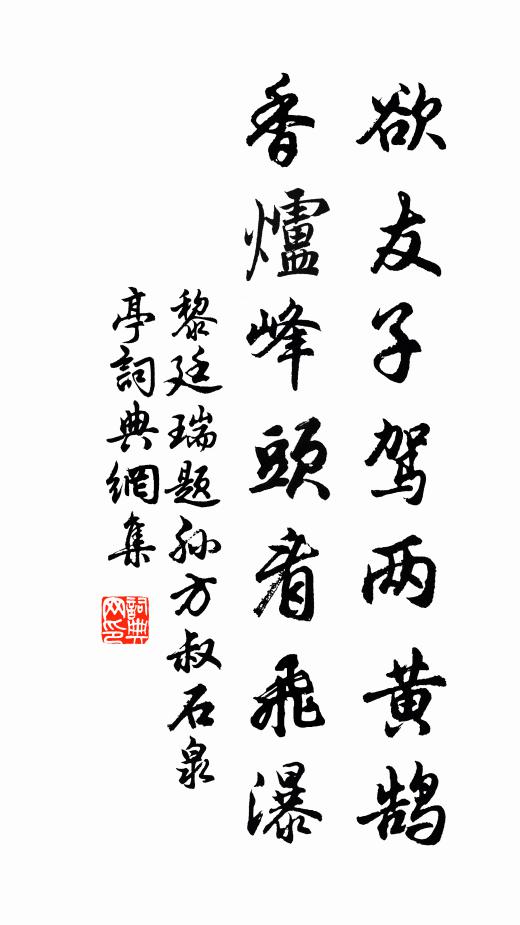 欲友子驾两黄鹄
香爐峰頭看飛瀑
黎廷瑞题孙方叔石泉
亭詞典網集
詞典
网印